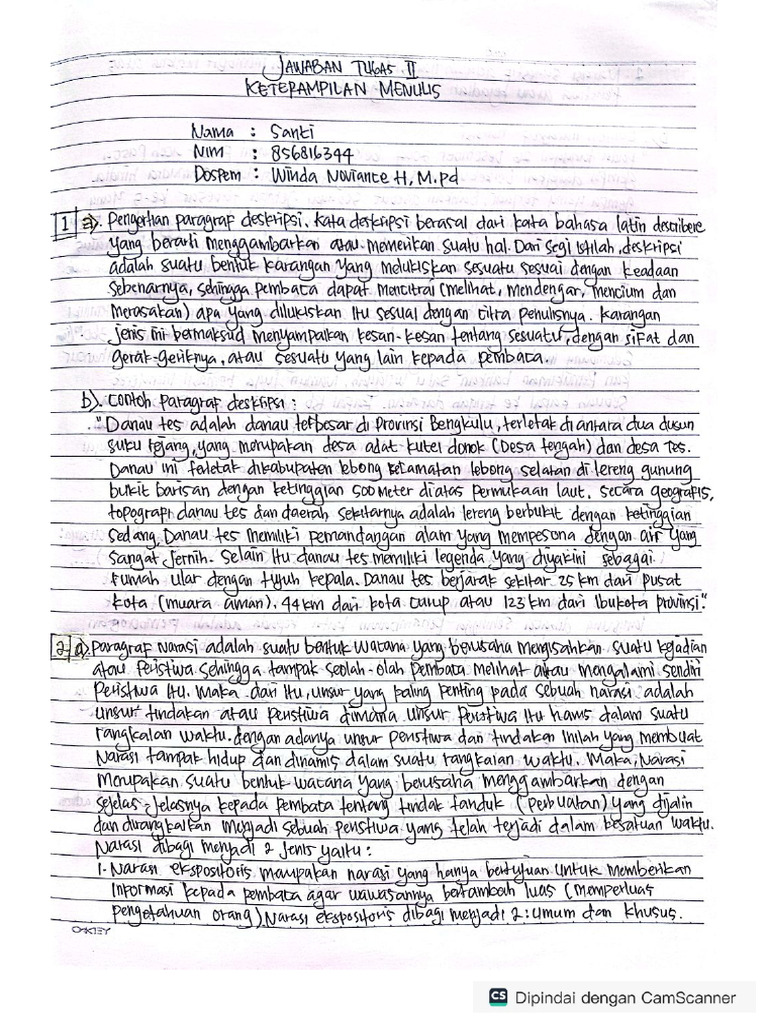 JAWABAN TUGAS II
KETERAMPILAN MENULIS
Nama : Santi
NIM : 856816344
Dospem : Winda Noviance H, M.pd
1 a). Pengertian paragraf deskripsi. Kata deskripsi berasal dari kata bahasa latin describere
yang berarti menggambarkan atau memerikan suatu hal. Dari segi istilah, deskripsi
adalah suatu bentuk karangan yang melukiskan sesuatu sesuai dengan keadaan
sebenarnya, sehingga pembaca dapat mencitrai (melihat, mendengar, mencium dan
merasakan) apa yang dilukiskan itu sesuai dengan citra penulisnya. Karangan
jenis ini bermaksud menyampaikan kesan-kesan tentang sesuatu, dengan sifat dan
gerak-geriknya, atau sesuatu yang lain kepada pembaca.
b). Contoh paragraf deskripsi :
"Danau tes adalah danau terbesar di Provinsi Bengkulu, terletak di antara dua dusun
suku rejang, yang merupakan desa adat kutei donok (Desa tengah) dan desa Tes.
Danau ini terletak dikabupaten lebong kecamatan lebong selatan di lereng gunung
bukit barisan dengan ketinggian 500 meter di atas permukaan laut. Secara geografis,
topografi danau tes dan daerah sekitarnya adalah lereng berbukit dengan ketinggian
sedang. Danau tes memiliki pemandangan alam yang mempesona dengan air yang
sangat jernih. Selain itu danau tes memiliki legenda yang diyakini sebagai
rumah ular dengan tujuh kepala. Danau tes berjarak sekitar 25 km dari pusat
kota (muara aman). 44 km dari kota curup atau 123 km dari ibukota provinsi."
2 a) Paragraf Narasi adalah suatu bentuk wacana yang berusaha mengisahkan suatu kejadian
atau peristiwa sehingga tampak seolah-olah pembaca melihat atau mengalami sendiri
peristiwa itu. Maka dari itu, unsur yang paling penting pada sebuah narasi adalah
unsur tindakan atau peristiwa dimana unsur peristiwa itu harus dalam suatu
rangkaian waktu. dengan adanya unsur peristiwa dan tindakan inilah yang membuat
Narasi tampak hidup dan dinamis dalam suatu rangkaian waktu. Maka, Narasi
merupakan suatu bentuk wacana yang berusaha menggambarkan dengan
sejelas-jelasnya kepada pembaca tentang tindak tanduk (perbuatan) yang dijalin
dan dirangkaikan menjadi sebuah peristiwa yang telah terjadi dalam kesatuan waktu.
Narasi dibagi menjadi 2 jenis yaitu :
1. Narasi ekspositoris merupakan narasi yang hanya bertujuan untuk memberikan
informasi kepada pembaca agar wawasannya bertambah luas (memperluas
pengetahuan orang) Narasi ekspositoris dibagi menjadi 2 : umum dan khusus.
OAKLEY
CS Dipindai dengan CamScanner